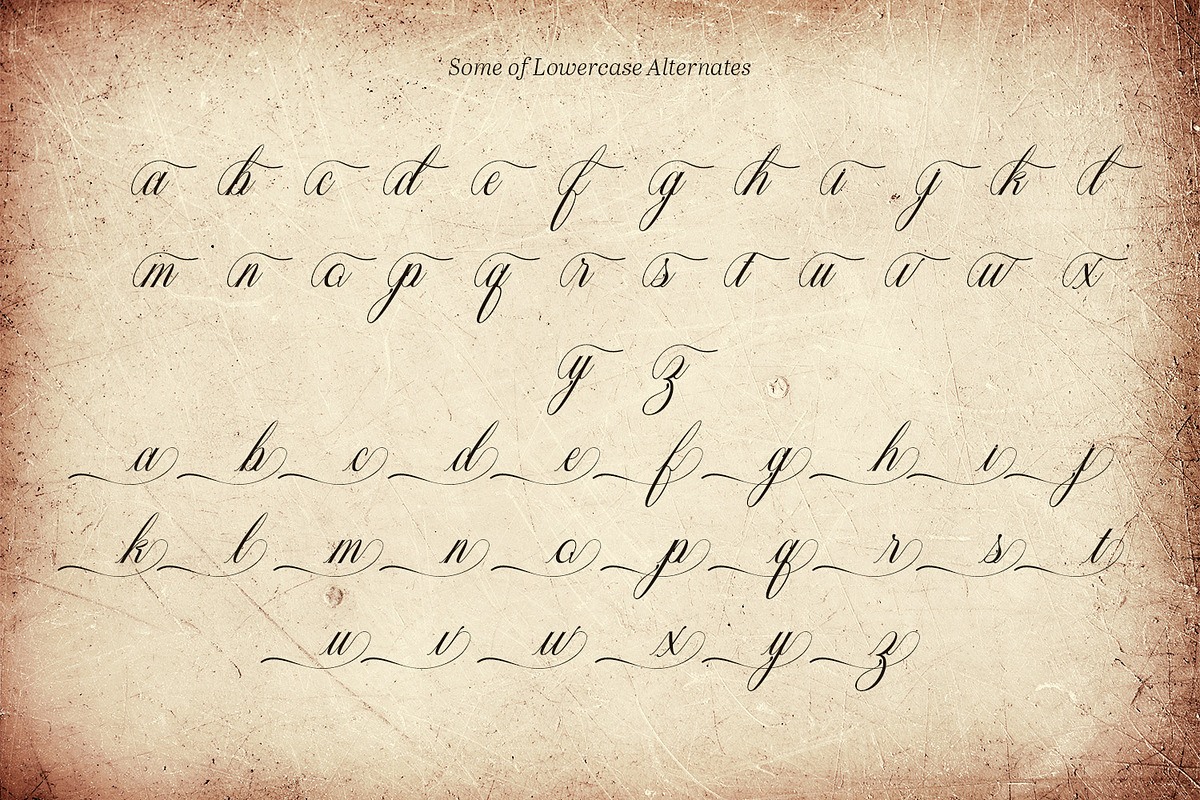 Some of Lowercase Alternates
a b c d e f g h i j k l
m n o p q r s t u v w x
y z
a b c d e f g h i j
k l m n o p q r s t
u v w x y z